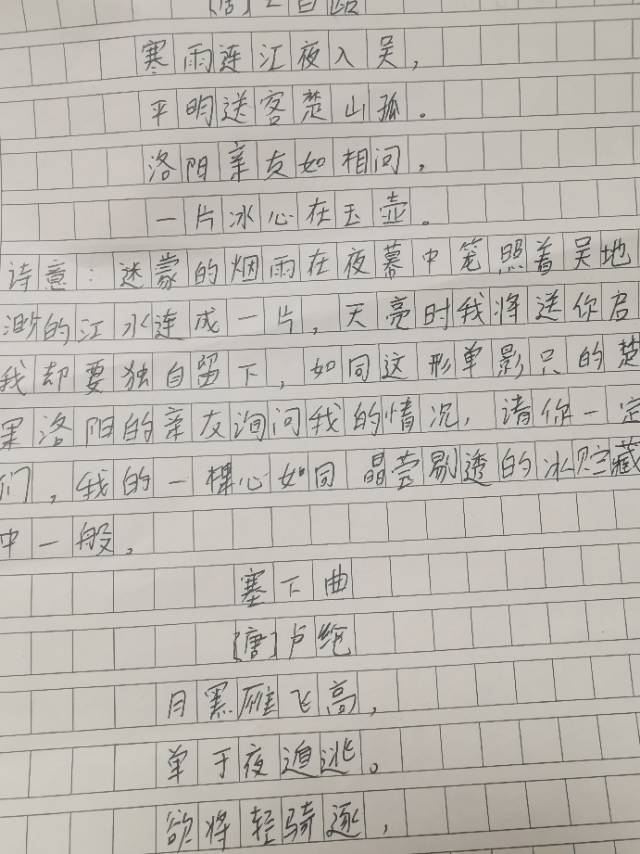 寒雨连江夜入吴，
平明送客楚山孤。
洛阳亲友如相问，
一片冰心在玉壶。
诗意：迷蒙的烟雨在夜幕中笼照着吴地
渺的江水连成一片，天亮时我将送你启
我却要独自留下，如同这形单影只的楚
果洛阳的亲友询问我的情况，请你一定
们，我的一棵心如同晶莹剔透的冰贮藏
中一般。
塞下曲
[唐]卢纶
月黑雁飞高，
单于夜遁逃。
欲将轻骑逐，